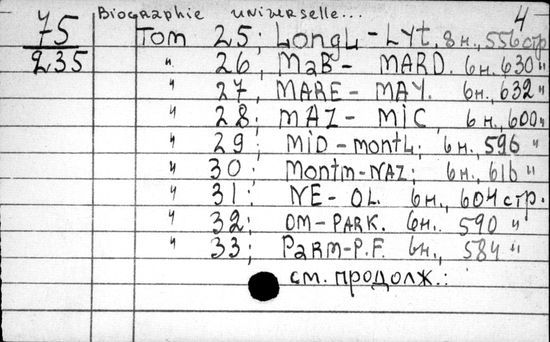 75
235
Biographie universelle... 4
Том 25; LongL-Lyt. 8н., 556стр
" 26, MaB- MARD. 6н., 630 "
" 27, MARE - MAY. 6н., 632 "
" 28; MAZ - MiC, 6н., 600 "
" 29; MiD-montL; 6н., 596 "
" 30; Montm-NAZ; 6н., 616 "
" 31; NE-OL. 6н., 604 стр.
" 32; OM-PARK. 6н. 590 "
" 33; PaRM-P.F. 6н., 584 "
см. продолж.: